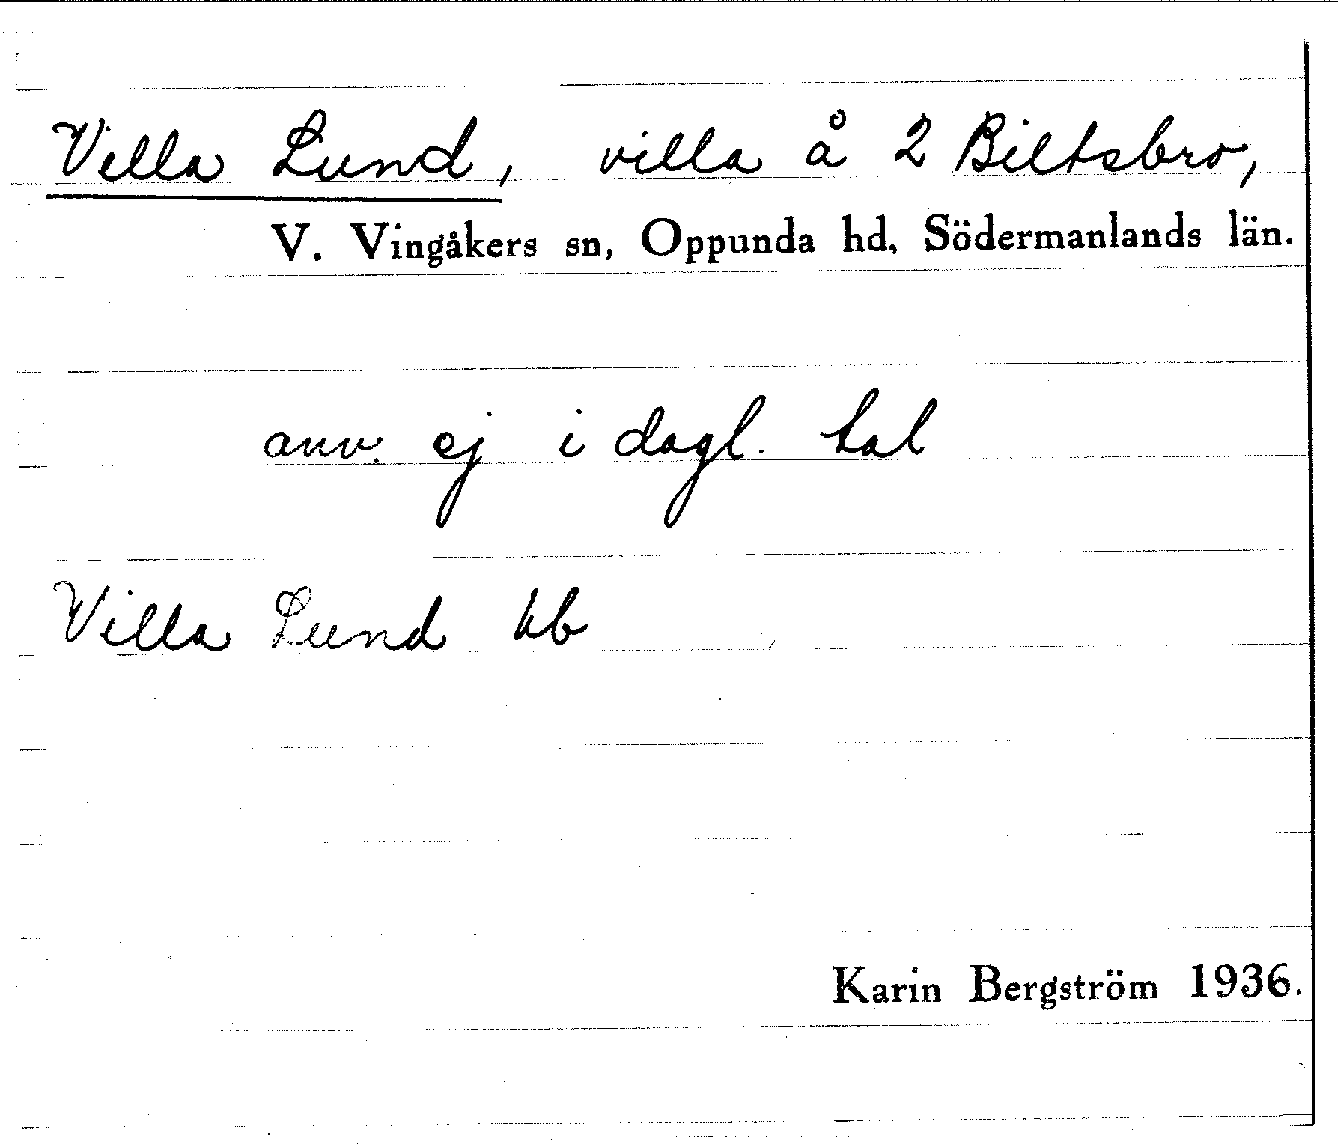 Villa Lund, villa å 2 Biltsbro,
V. Vingåkers sn, Oppunda hd, Södermanlands län.
anv. ej i dagl. tal
Villa Lund kb
Karin Bergström 1936.